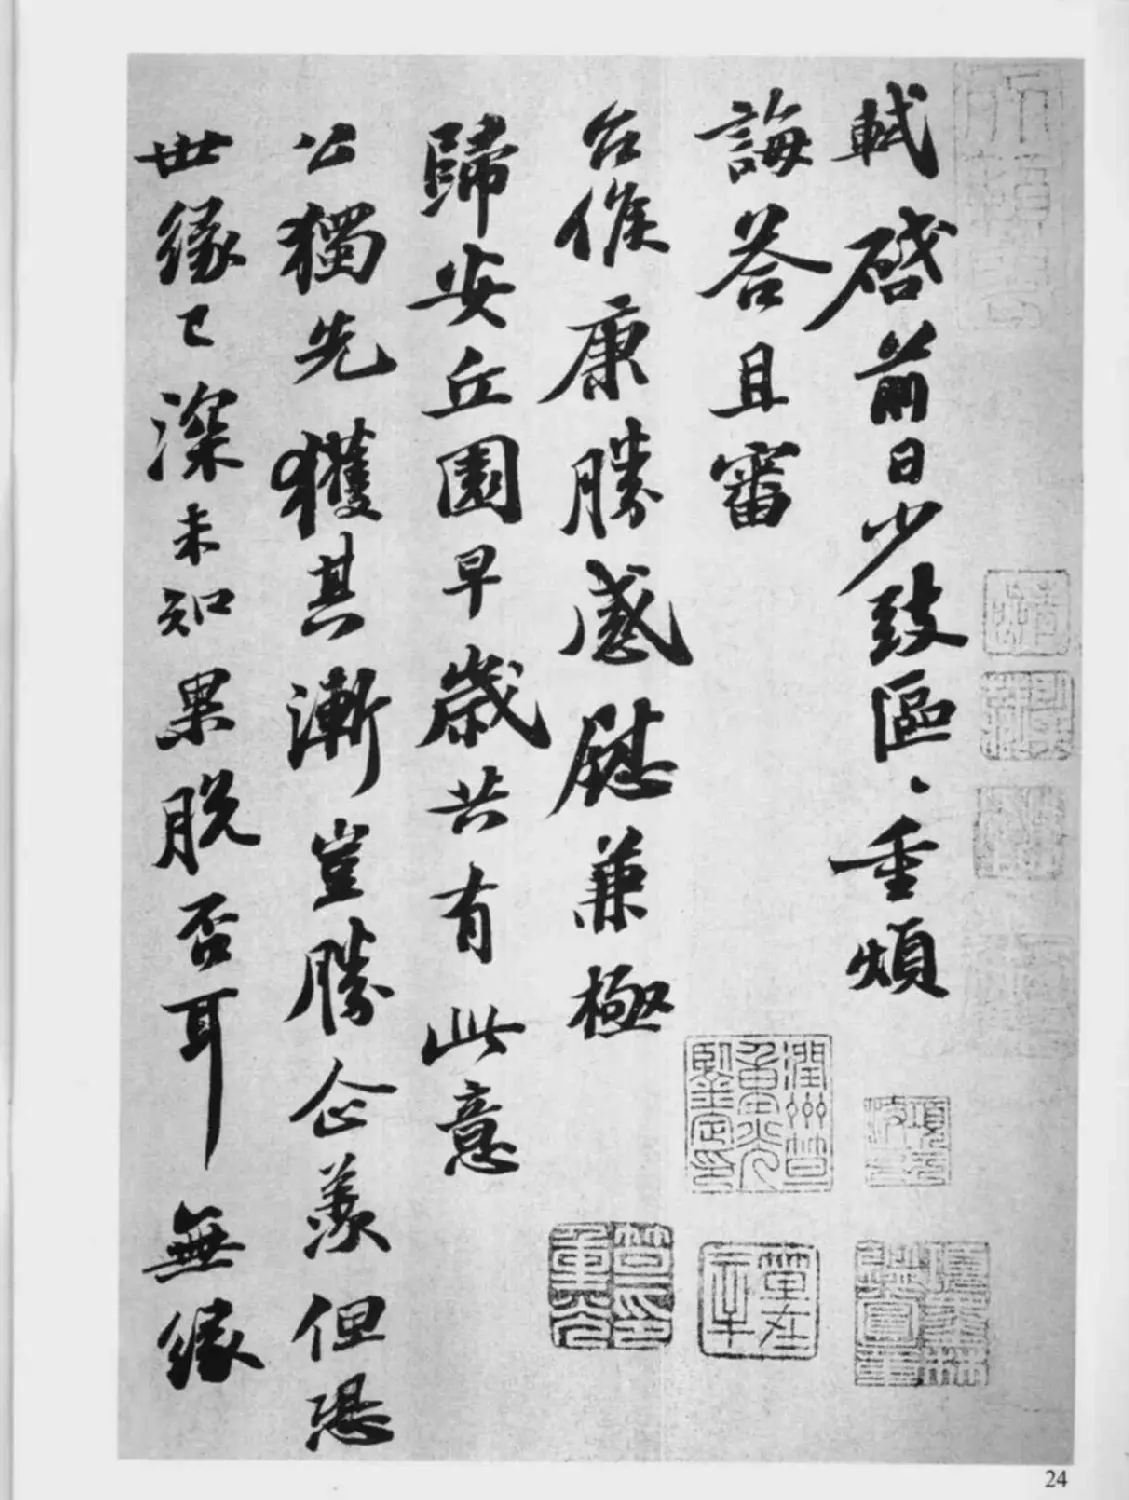 軾啓前日少致區〻重煩
誨荅且審
台候康勝感慰兼極
歸安丘園早歲共有此意
公獨先獲其漸豈勝企羨但恐
世緣已深未知果脫否耳無緣
24